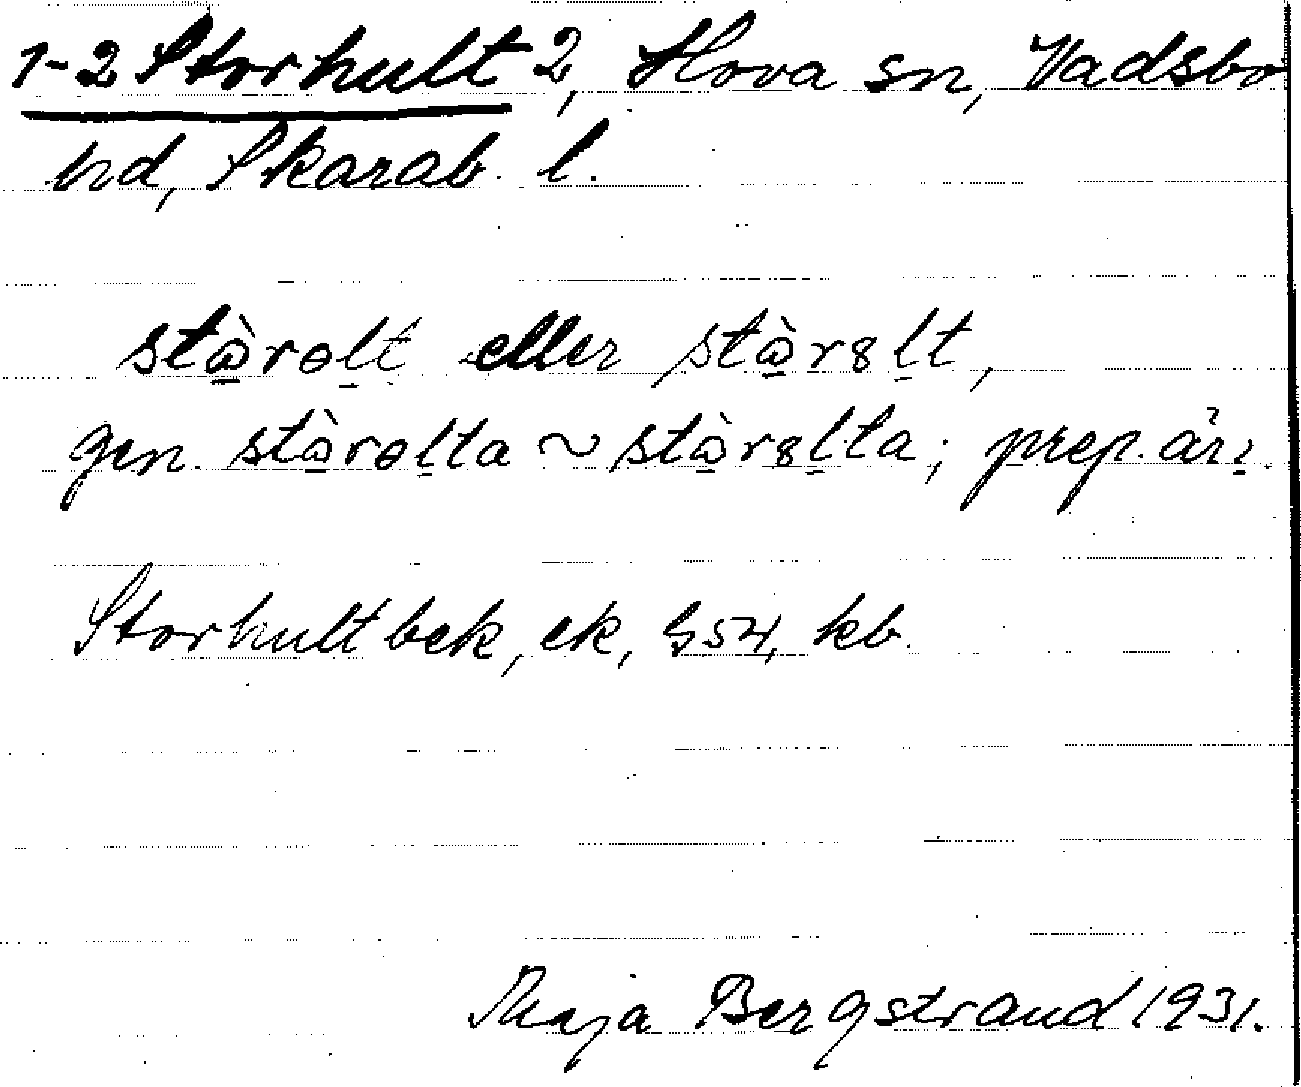 1-2 Storhult 2, Hova sn, Vadsbo
hd, Skarab. l.
stὼ̲rɵl̲t eller stὼ̲r8l̲t,
gen. stὼ̲rɵl̲ta ~ stὼ̲r8l̲ta; prep.
Storhultbek, ek, § 54, kb.
Maja Bergstrand 1931.